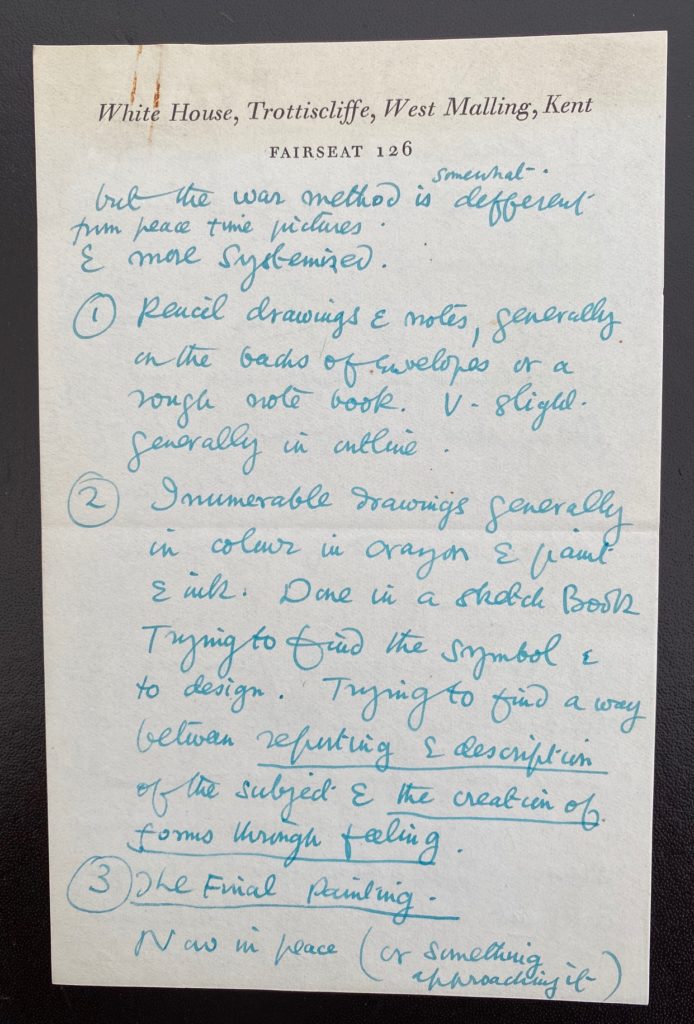 White House, Trottiscliffe, West Malling, Kent
FAIRSEAT 126
somewhat.
but the war method is defferent
from peace time pictures.
& more Systemised.
① Pencil drawings & notes, generally
on the backs of envelopes or a
rough note book. V- slight.
generally in outline.
② Inumerable drawings generally
in colour in crayon & paint
& ink. Done in a sketch Book
Trying to find the symbol &
to design. Trying to find a way
between reporting & description
of the subject & the creation of
forms through feeling.
③ The Final Painting.
Now in peace (or something
approaching it)